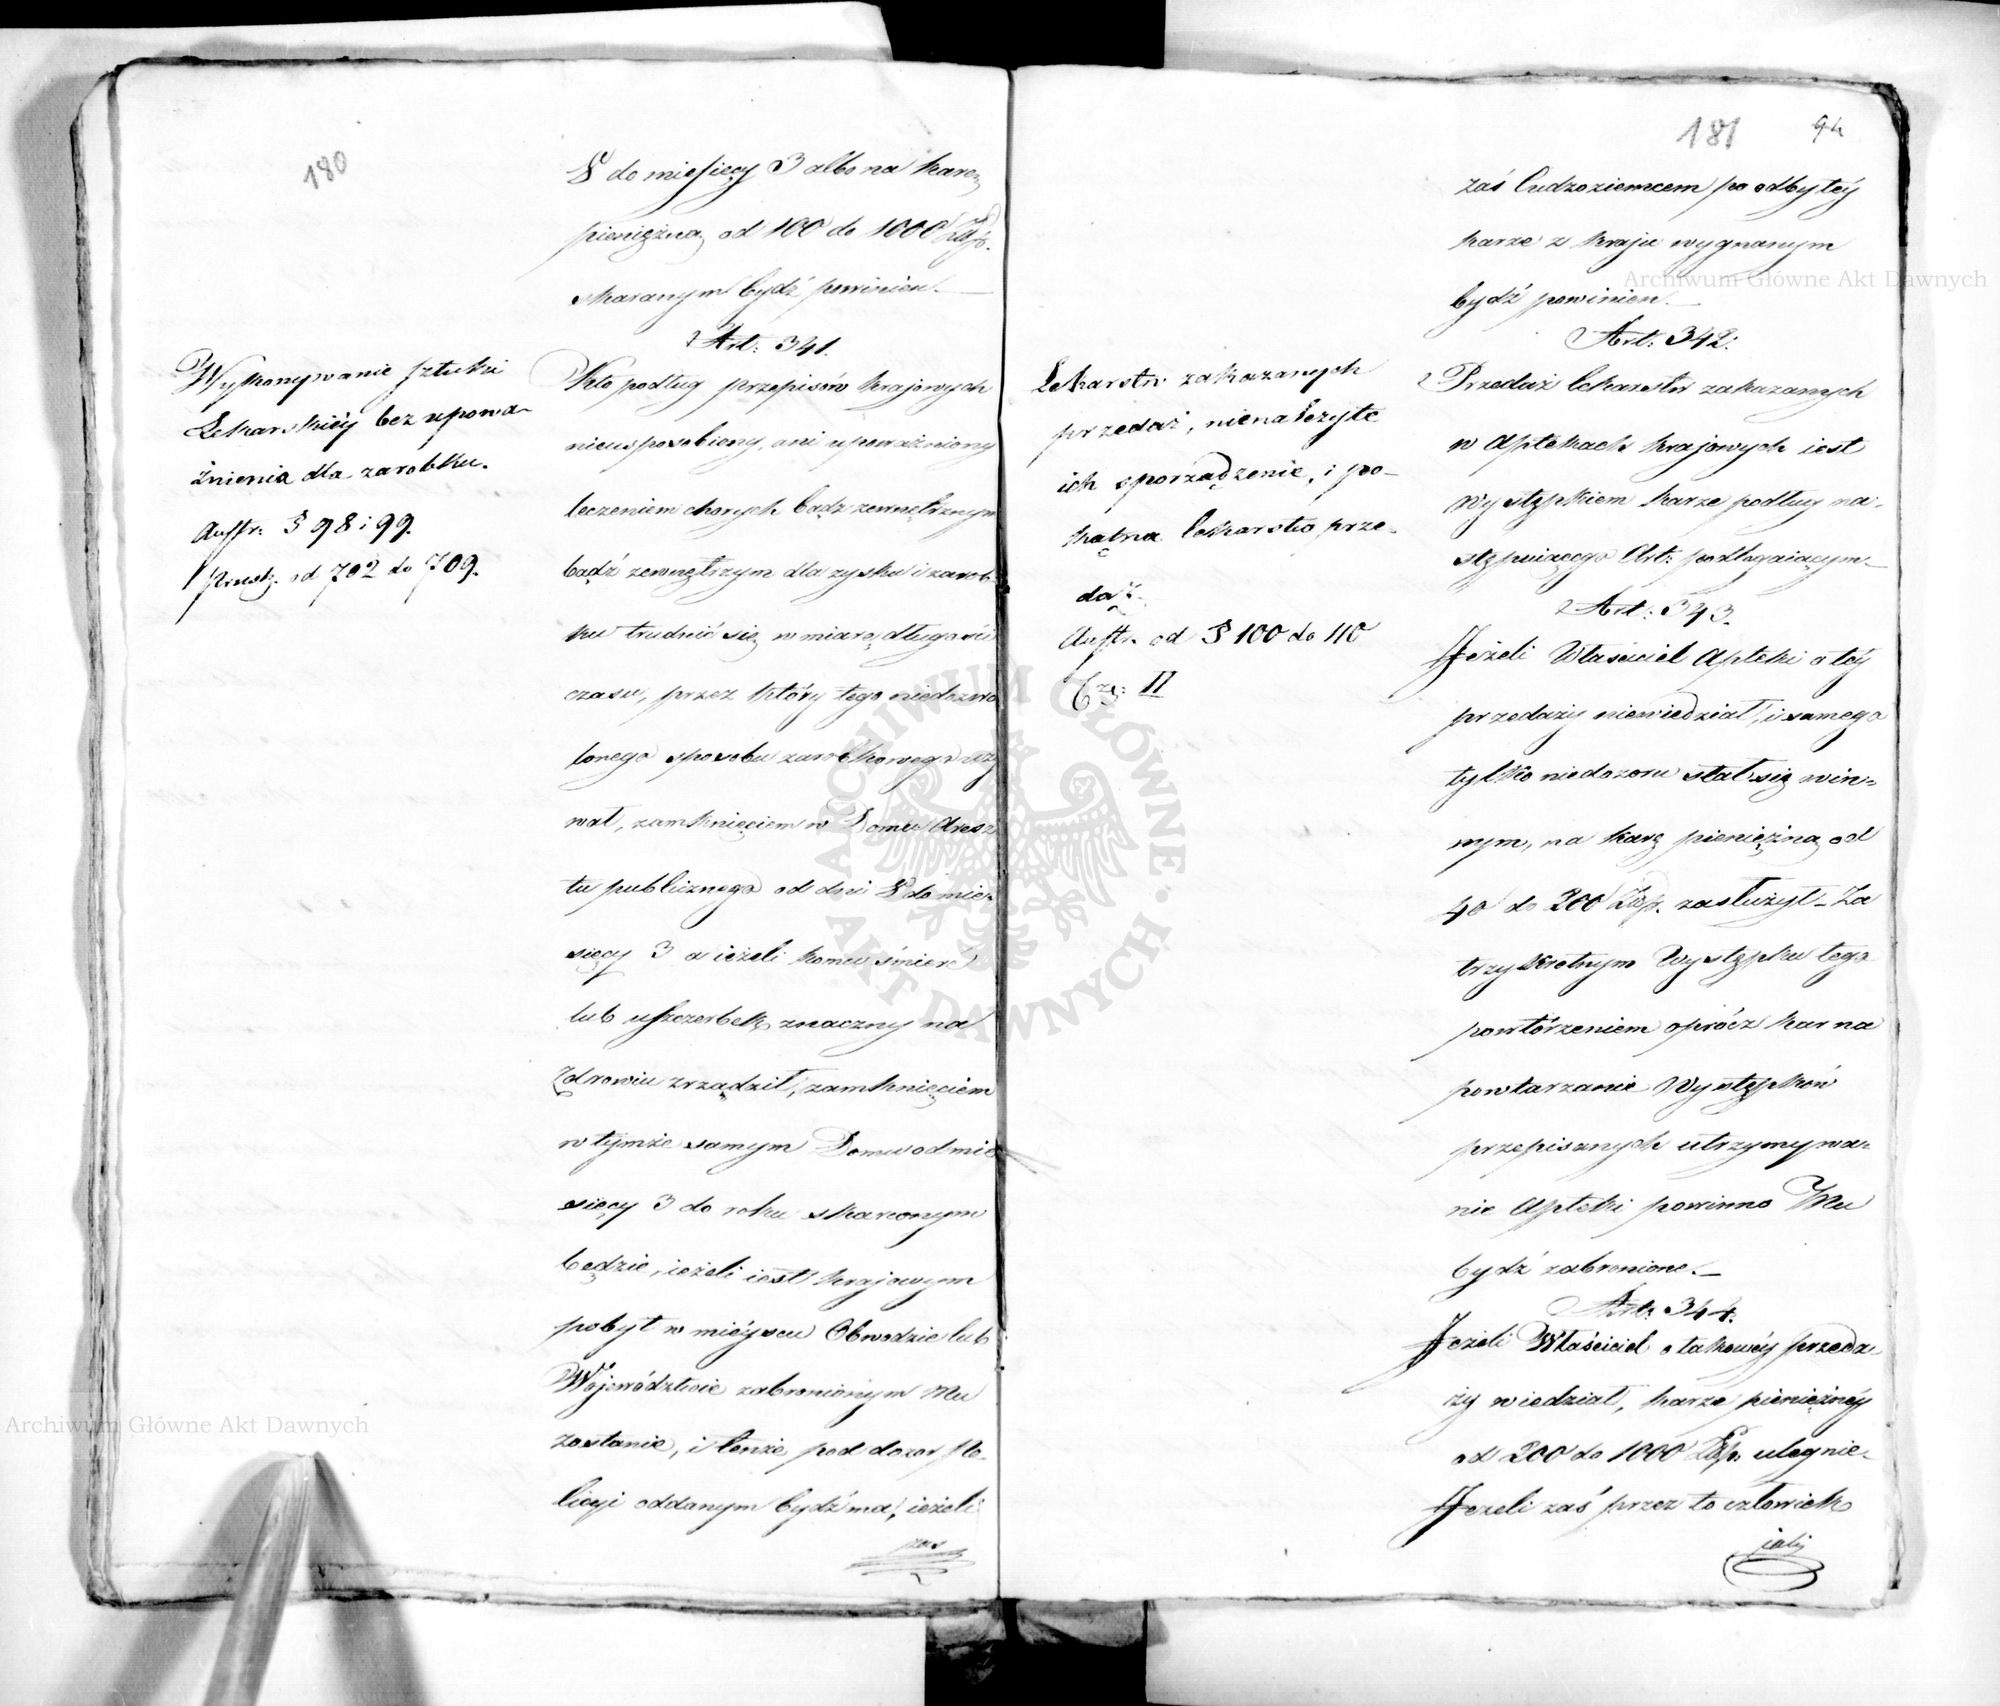 180
8 do miesięcy 3 albo na karę
pieniężną od 100 do 1000 Złp.
skaranym bydź powinien.
Art: 341.
Wykonywanie sztuki
Lekarskiéy bez upowa-
żnienia dla zarobku.
Austr: § 98 i 99.
Prusk. od 702 do 709.
Kto podług przepisów krajowych
nieusposobiony, ani upoważniony
leczeniem chorych bądź zewnętrznym
bądź zewnętrzym dla zysku i zarob-
ku trudnić się w miarę długości
czasu, przez który tego niedozwo
lonego sposobu zarobkowego uży
wał, zamknięciem w Domu Aresz
tu publicznego od dni 8 do mie-
sięcy 3 a ieżeli komu śmierć
lub uszczerbek znaczny na
Zdrowiu zrządził, zamknięciem
w tymże samym Domu od mie
sięcy 3 do roku skaronym
będzie, ieżeli iest krajowym
pobyt w miéyscu Obwodzie lub
Województwie zabronionym Mu
zostanie, i tenże pod dozor Po-
licyi oddanym bydź ma, ieżeli
zas
181
94
zaś Cudzoziemcem po odbytéy
karze z kraju wygnanym
bydź powinien.
Art: 342.
Lekarstw zakazanych
przedaż, nienależyte
ich sporządzenie, i po-
kątna lekarstw prze-
daż.
Austr. od § 100 do 110
Czę: II
Przedaż lekarstw zakazanych
w Aptekach krajowych iest
Występkiem karze podług na-
stępuiącego Art: podlegaiącym.
Art: 343.
Jeżeli Właściciel Apteki o téy
przedaży niewiedział, i samego
tylko niedozoru stał się win-
nym, na karę pieniężną od
40 do 200 Złp. zasłużył – Za
trzykrotnym Występku tego
powtórzeniem oprócz kar na
powtarzanie Występków
przepisanych utrzymywa-
nie Apteki powinno Mu
bydź zabronione.
Art: 344.
Jeżeli Właściciel o takowéy przeda-
ży wiedział, karze pieniężnéy
od 200 do 1000 Złp. ulegnie.
Jeżeli zaś przez to człowiek
Archiwum Główne Akt Dawnych
Archiwum Główne Akt Dawnych
ARCHIWUM GŁÓWNE AKT DAWNYCH